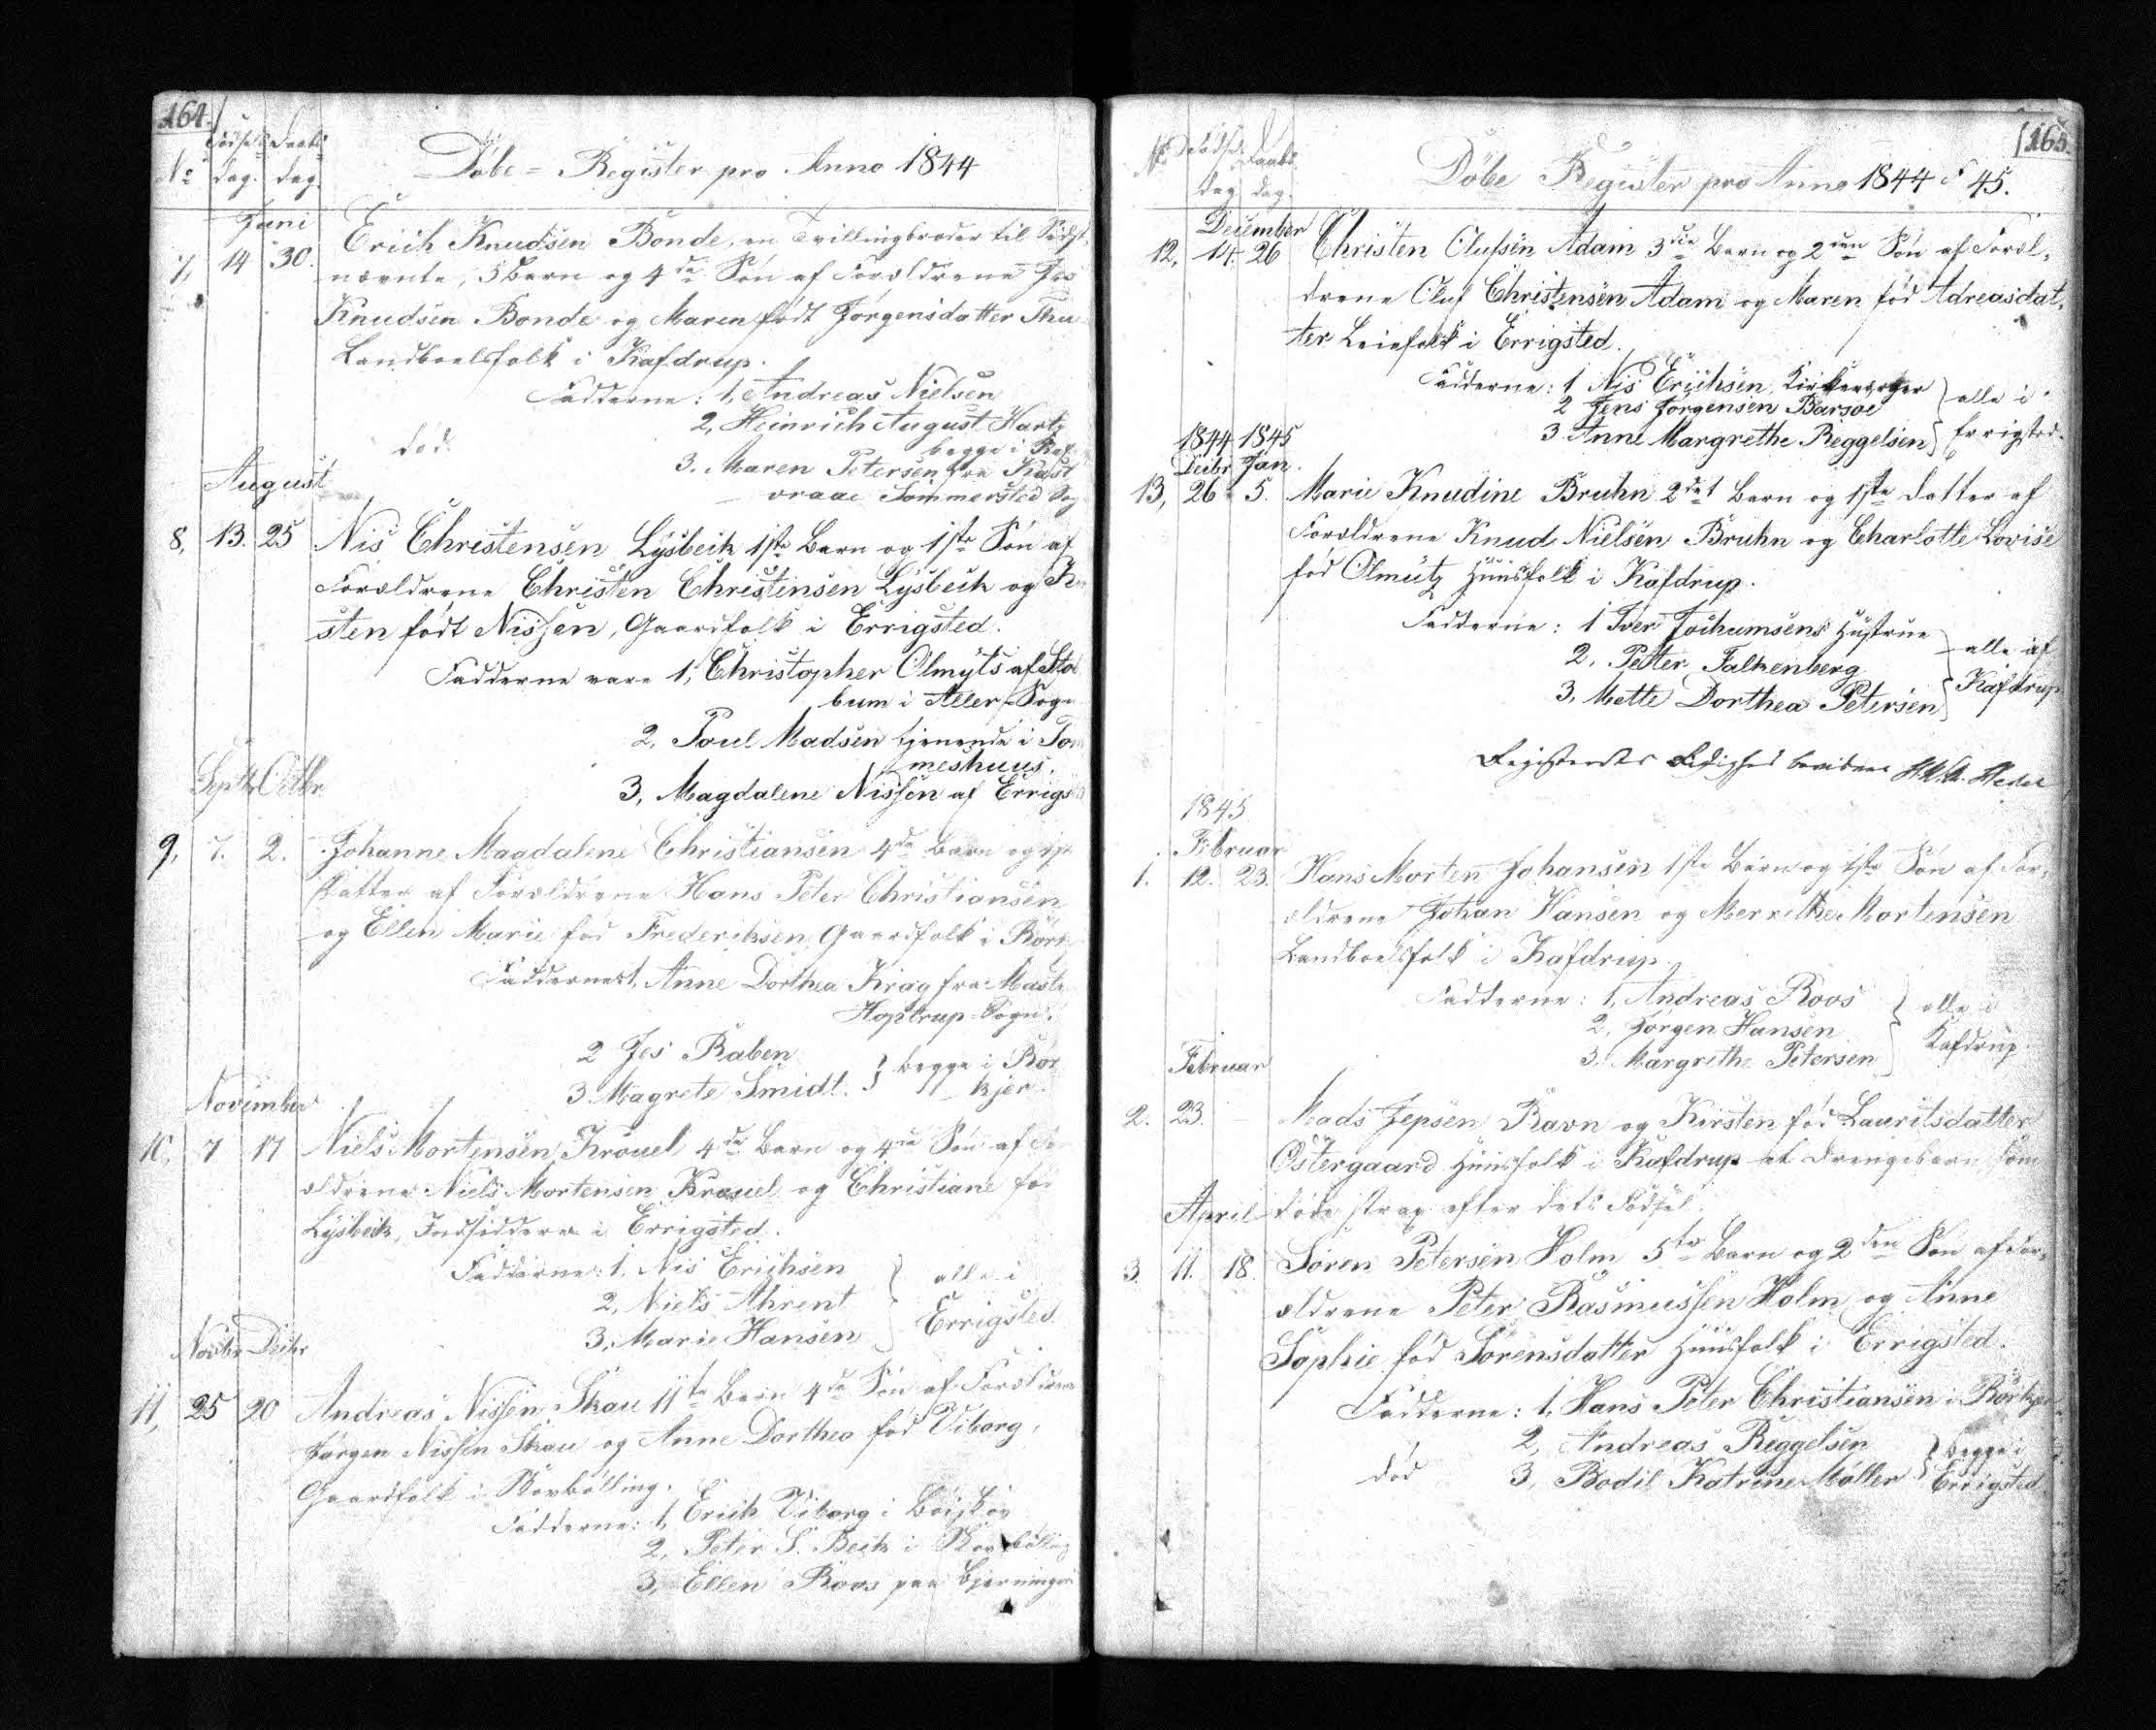 164.
Fødsels Daabs
No dag. dag.
Döbe = Register pro Anno 1844
Juni
7, 14 30. Erich Knudsen Bonde, en Tvillingbroder til Sidst
nævnte, 5 Barn og 4de Søn af Forældrene Jes
Knudsen Bonde og Maren født Jörgensdatter
Landboelsfolk i Kafdrup.
Fadderne: 1, Andreas Nielsen
2, Heinrich August Hartz
begge i Kaf
død.
3. Maren Petersen fra Kast
vraae Sommersted Sog
August
8, 13. 25 Nis Christensen Lysbeck 1ste Barn og 1ste Søn af
Forældrene Christen Christensen Lysbeck og
sten født Nissen, Gaardfolk i Errigsted.
Fadderne vare 1, Christopher Olmyts af
bum i Aller-Sogn
2, Poul Madsen tjenende i
meshuus.
3, Magdalene Nissen af Errigs
Septbr Octbr
9, 7. 2. Johanne Magdalene Christiansen 4de Barn og
Datter af Forældrene Hans Peter Christiansen
og Ellen Marie fød Frederiksen Gaardfolk i
Fadderne 1, Anne Dorthea Krag fra Mast
Hoptrup-Sogn.
2 Jes Raben
3. Magrete Smidt. } begge i Rör
kjer.
November
10, 7 17 Niels Mortensen Krouel 4de Barn og 4de Søn af
ældrene Niels Mortensen Krouel og Christiane fød
Lysbeck, Indsiddere i Errigsted.
Fadderne: 1. Nis Erichsen
2, Niels Ahrent
3, Marie Hansen
} alle i
Errigsted
Novbr Decbr
11, 25 20 Andreas Nissen Skau 11te Barn 4de Søn af Forældrene
Jörgen Nissen Skau og Anne Dorthea fød Viborg,
Gaardfolk i Skovbölling.
Fadderne: 1, Erich Viborg i
2, Peter S. Beck i Skovbölling
3, Ellen Roos paa
165.
No Fødsels Daabs
dag dag.
Döbe Register pro Anno 1844 & 45.
December
12, 14. 26 Christen Olufsen Adam 3die Barn og 2den Søn af Foræl-
drene Oluf Christensen Adam og Maren fød Adreasdat-
ter Leiefolk i Errigsted.
Fadderne: 1 Nis Erichsen, Kirkeværger
2 Jens Jörgensen Barsøe
3. Anne Margrethe Reggelsen
} alle i
Errigsted.
1844 1845
Decbr Jan.
13, 26 5. Marie Knudine Bruhn 2det Barn og 1ste Datter af
Forældrene Knud Nielsen Bruhn og Charlotte Lovise
fød Olmütz Huusfolk i Kafdrup.
Fadderne: 1 Iver Jochumsens Hustrue
2, Petter Falkenberg
3, Mette Dorthea Petersen
} alle af
Kafdrup
Registerets Rigtighed bevidner
1845.
Februar
1. 12. 23. Hans Morten Johansen 1ste Barn og 1ste Søn af For-
ældrene Johan Hansen og Merrethe Mortensen
Landboelsfolk i Kafdrup.
Fadderne: 1, Andreas Roos
2, Jörgen Hansen
3. Margrethe Petersen
} alle i
Kafdrup.
Februar
2. 23. – Mads Jepsen Ravn og Kirsten fød Lauritsdatter
Östergaard Huusfolk i Kafdrup et Drengebarn som
døde strax efter dets Fødsel.
April
3. 11. 18. Sören Petersen Holm 5te Barn og 2den Søn af For-
ældrene Peter Rasmussen Holm og Anne
Sophie fød Sörensdatter Huusfolk i Errigsted.
Fadderne: 1, Hans Peter Christiansen i Rörkjer
2, Andreas Reggelsen
død 3, Bodil Katrine Möller
} begge i
Errigsted